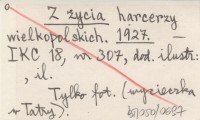 Z życia harcerzy
wielkopolskich. 1927. —
IKC 18, nr 307, dod. ilustr.
, il.
Tylko fot. (wycieczka
w Tatry).